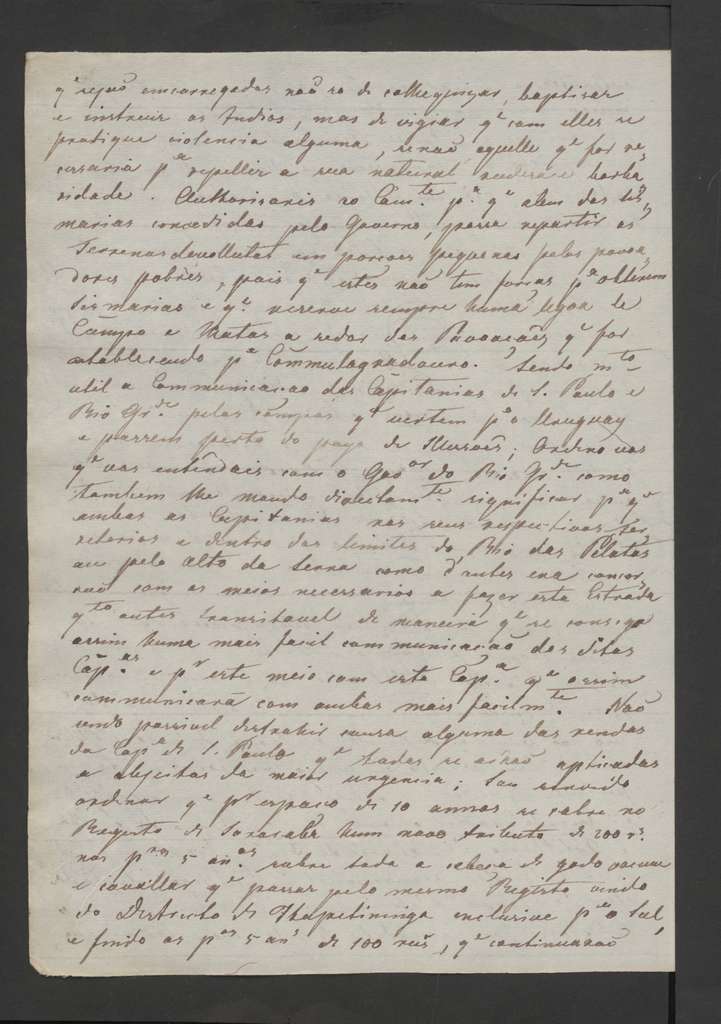 q.e sejaõ emcarregados naõ so de cathequizar, baptisar
e instruir os Indios, mas de vigiar q.e com elles se
pratique violencia alguma, senaõ aquella q.e for ne,
cessaria p.a repellir a sua natural rudesa e barba
ridade. Authorisareis ao Com.te p.a q.e alem das ses,
marias concedidas pelo Governo, possa repartir os
Terrenos devollutos em porcoes pequenas pelos povoa,
dores pobres, pois q.e estes naõ tem forcas p.a obterem
Sismarias e q.e reserve sempre huma legoa de
Campo e Matas a redor das Povoacoẽs q.e for
establecendo p.a Commulogradouro. Sendo m.to
util a Communicacaõ das Capitanias de S. Paulo e
Rio Gr.de pelos campos q.e vertem p.a o Uruguay
e passem perto do paço de Missoẽs; Ordeno vos
q.e vos entendais com o Gov.or do Rio Gr.de como
tambem lhe mando directam.te significar p.a q.e
ambas as Capitanias nos seus respectivos ter,
retorios e dentro dos limites do Rio das Pelotas
ou pelo alto da Serra como d'antes era concor,
raõ com os meios necessarios a fazer esta Estrada
q.to antes transitavel de maneira q.e se consiga
assim huma mais facil communicacaõ das ditas
Cap.as e p.r este meio com esta Cap.a q.e assim
communicará com ambas mais facilm.te. Naõ
sendo possivel distrahir cousa alguma das rendas
da Cap.a de S. Paulo q.e todas se achaõ applicadas
a objectos da maior urgencia; Sou servido
ordenar q.e p.r espaco de 10 annos se cobre no
Registo de Sorocaba hum novo tributo de 200 r.s
nos p.ros 5 an.os sobre toda a cabeca de gado vacum
e cavallar q.e passar pelo mesmo Registo vindo
do Districto de Itapetininga inclusive p.a o Sul,
e findo os p.os 5 an.s de 100 reis, q.e continuaraõ